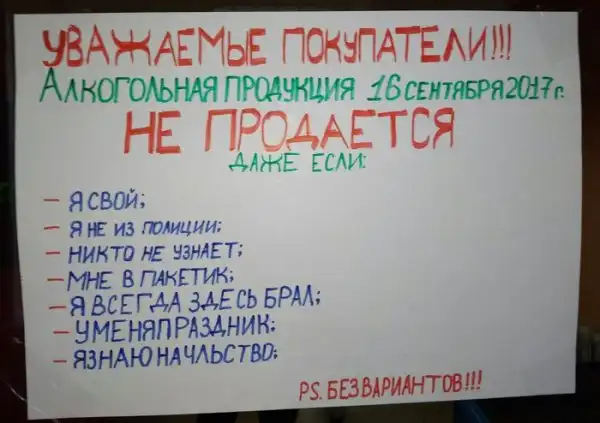 УВАЖАЕМЫЕ ПОКУПАТЕЛИ!!!
АЛКОГОЛЬНАЯ ПРОДУКЦИЯ 16 СЕНТЯБРЯ 2017 г.
НЕ ПРОДАЕТСЯ
ДАЖЕ ЕСЛИ:
— Я СВОЙ;
— Я НЕ ИЗ ПОЛИЦИИ;
— НИКТО НЕ УЗНАЕТ;
— МНЕ В ПАКЕТИК;
— Я ВСЕГДА ЗДЕСЬ БРАЛ;
— УМЕНЯ ПРАЗДНИК;
— Я ЗНАЮ НАЧЛЬСТВО;
PS. БЕЗ ВАРИАНТОВ!!!